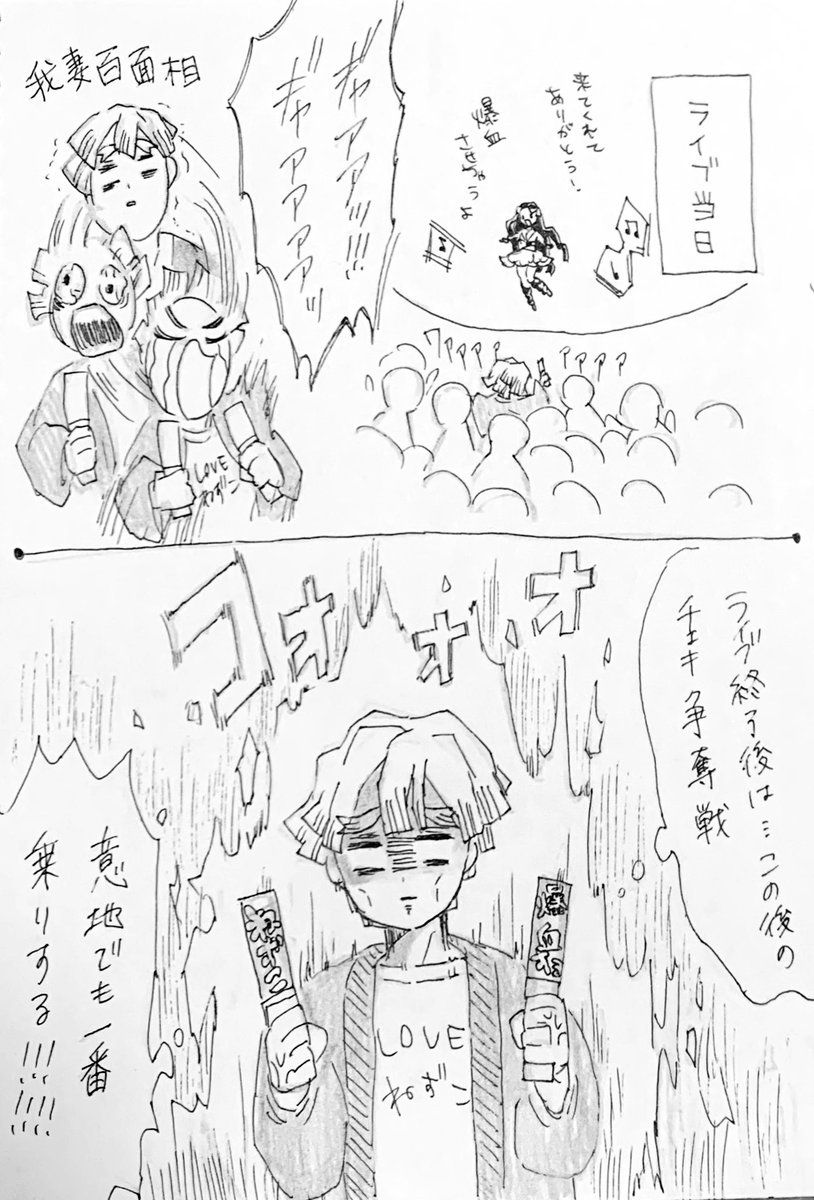 ライブ当日
来てくれて
ありがとう!
爆血
させちゃうよ
ワアアアア
アアアア
ギャアアア!!!
ギャアアアアアッ
我妻百面相
LOVE
ねずこ
ライブ終了後は…この後の
チェキ争奪戦
ゴォォオオ
ねずこ
爆血
LOVE
ねずこ
意地でも一番
乗りする!!!!!!!